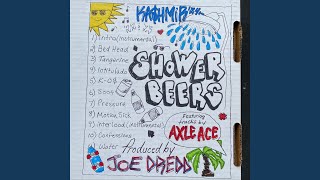 KASHMIR
1) Intro (instrumental)
2) Bed Head
3) Tangerine
4) Intitulado
5) K-Os
6) Song
7) Pressure
8) Motion Sick
9) Interload (instrumental)
10) Confessions
11) Water
SHOWER
BEERS
Featuring
tracks by
AXLE ACE
Produced by
JOE DREDD